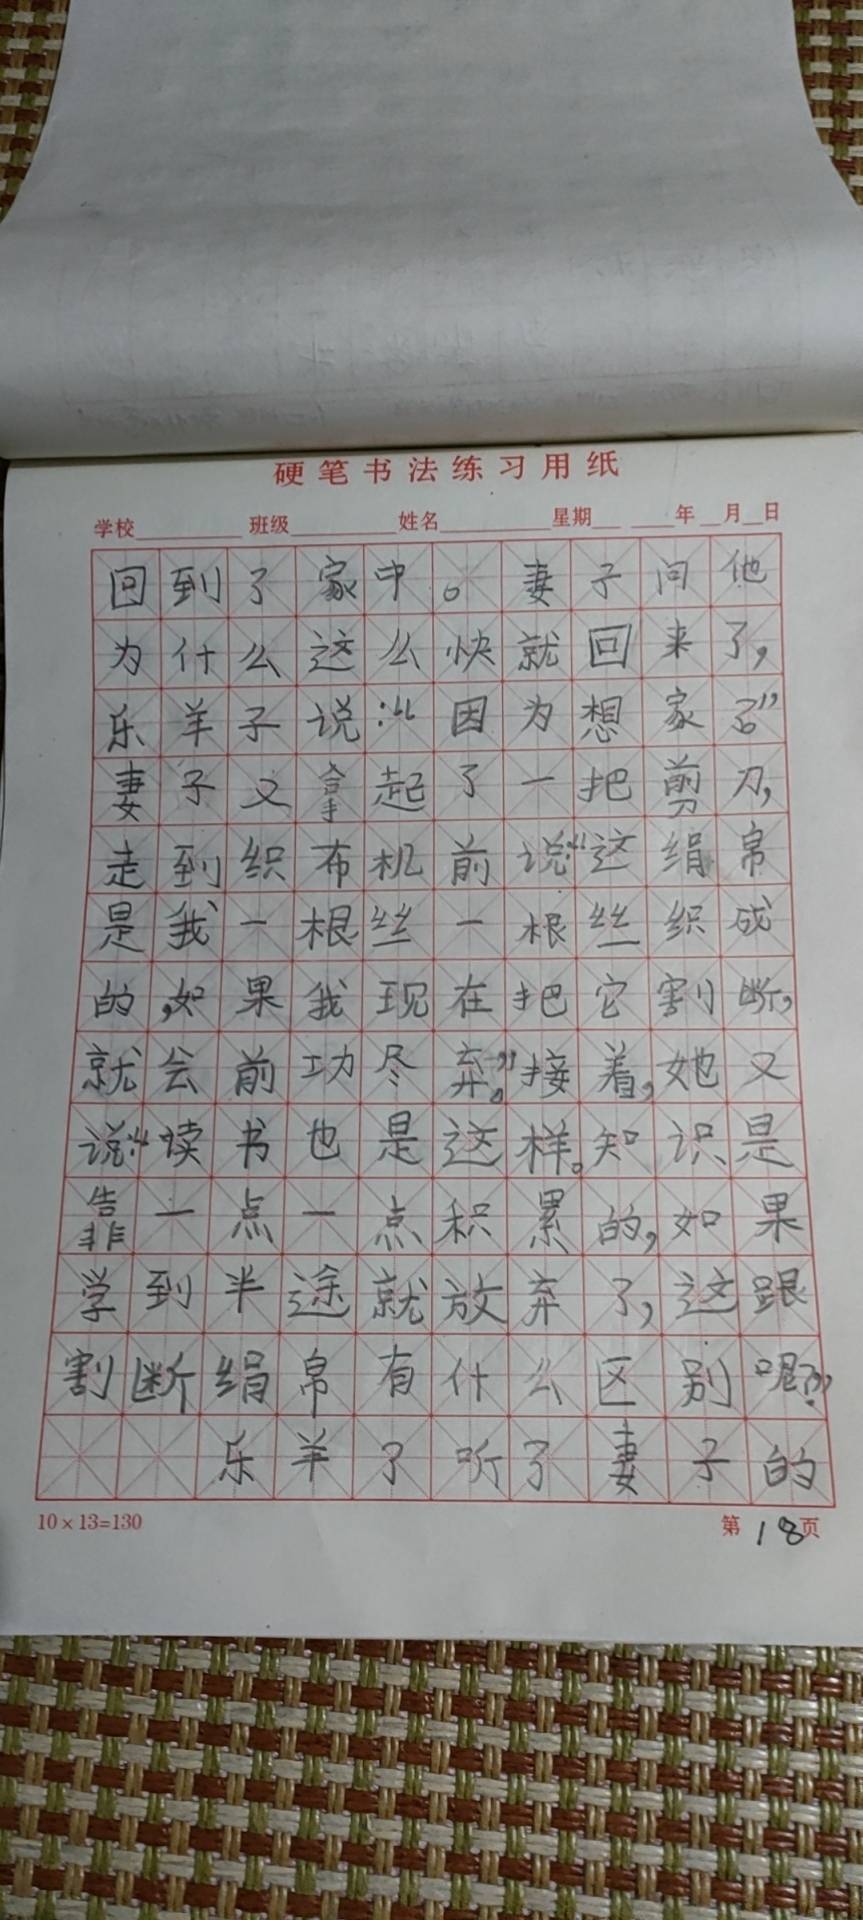 硬笔书法练习用纸
学校 班级 姓名 星期 年 月 日
回到了家中。妻子问他
为什么这么快就回来了,
乐羊子说:“因为想家了。”
妻子又拿起了一把剪刀,
走到织布机前说:“这绢帛
是我一根丝一根丝织成
的,如果我现在把它割断,
就会前功尽弃。”接着,她又
说:“读书也是这样。知识是
靠一点一点积累的,如果
学到半途就放弃了,这跟
割断绢帛有什么区别呢?”
乐羊了听了妻子的
10×13=130 第18页